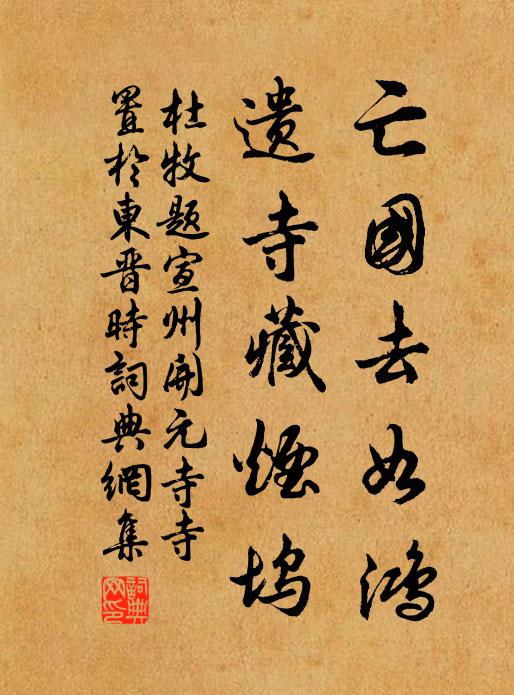 亡國去如鴻
遺寺藏煙塢
杜牧題宣州開元寺寺
置於東晉時詞典網集
詞典網印